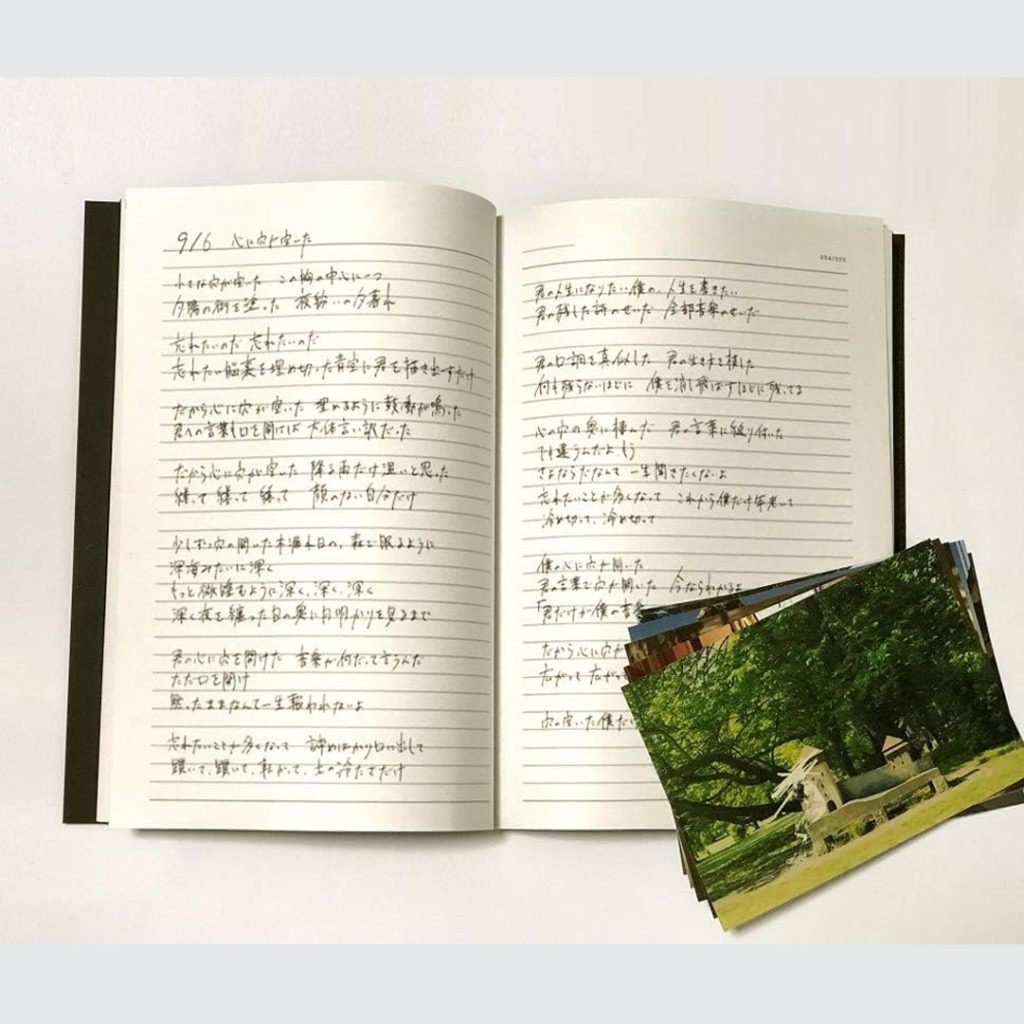 9/6 心に穴が空いた
小さな穴が空いた この胸の中心に一つ
夕陽の街を塗った 夜紛いの夕暮れ
忘れたいのだ 忘れたいのだ
忘れたい脳裏を埋め切った青空に君を描き出すだけ
だから心に穴が空いた 埋めるように鼓動が鳴った
君への言葉も口を開けば 大体言い訳だった
だから心に穴が空いた 降る雨だけ温いと思った
纏って 纏って 纏って 顔のない自分だけ
少しずつ穴の開いた木漏れ日の、森で眠るように
深海みたいに深く
もっと微睡むように深く、深く、深く
深く夜を纏った目の奥に月明かりを見るまで
君の心に穴を開けた 音楽が何だって言うんだ
ただ口を開け
黙ったままなんて一生報われないよ
忘れたいことが多くなって 諦めばかり口に出して
躓いて、躓いて、転がって、土の冷たさだけ
054/055
君の人生になりたい僕の、人生を書きたい
君の残した詩のせいだ 全部音楽のせいだ
君の口調を真似した 君の生き方を模した
何も残らないほどに 僕を消し飛ばすほどに残ってる
心の穴の奥に棲んだ 君の言葉に縋り付いた
でも違うんだよ、もう
さよならだなんて一生聞きたくないよ
忘れたいことが多くなって これから僕だけ年老いて
冷め切って、冷め切って
僕の心に穴が開いた
君の言葉で穴が開いた 今ならわかるよ
「君だけが僕の音楽
だから心に穴が
広がって 広がっ
穴の空いた僕だ